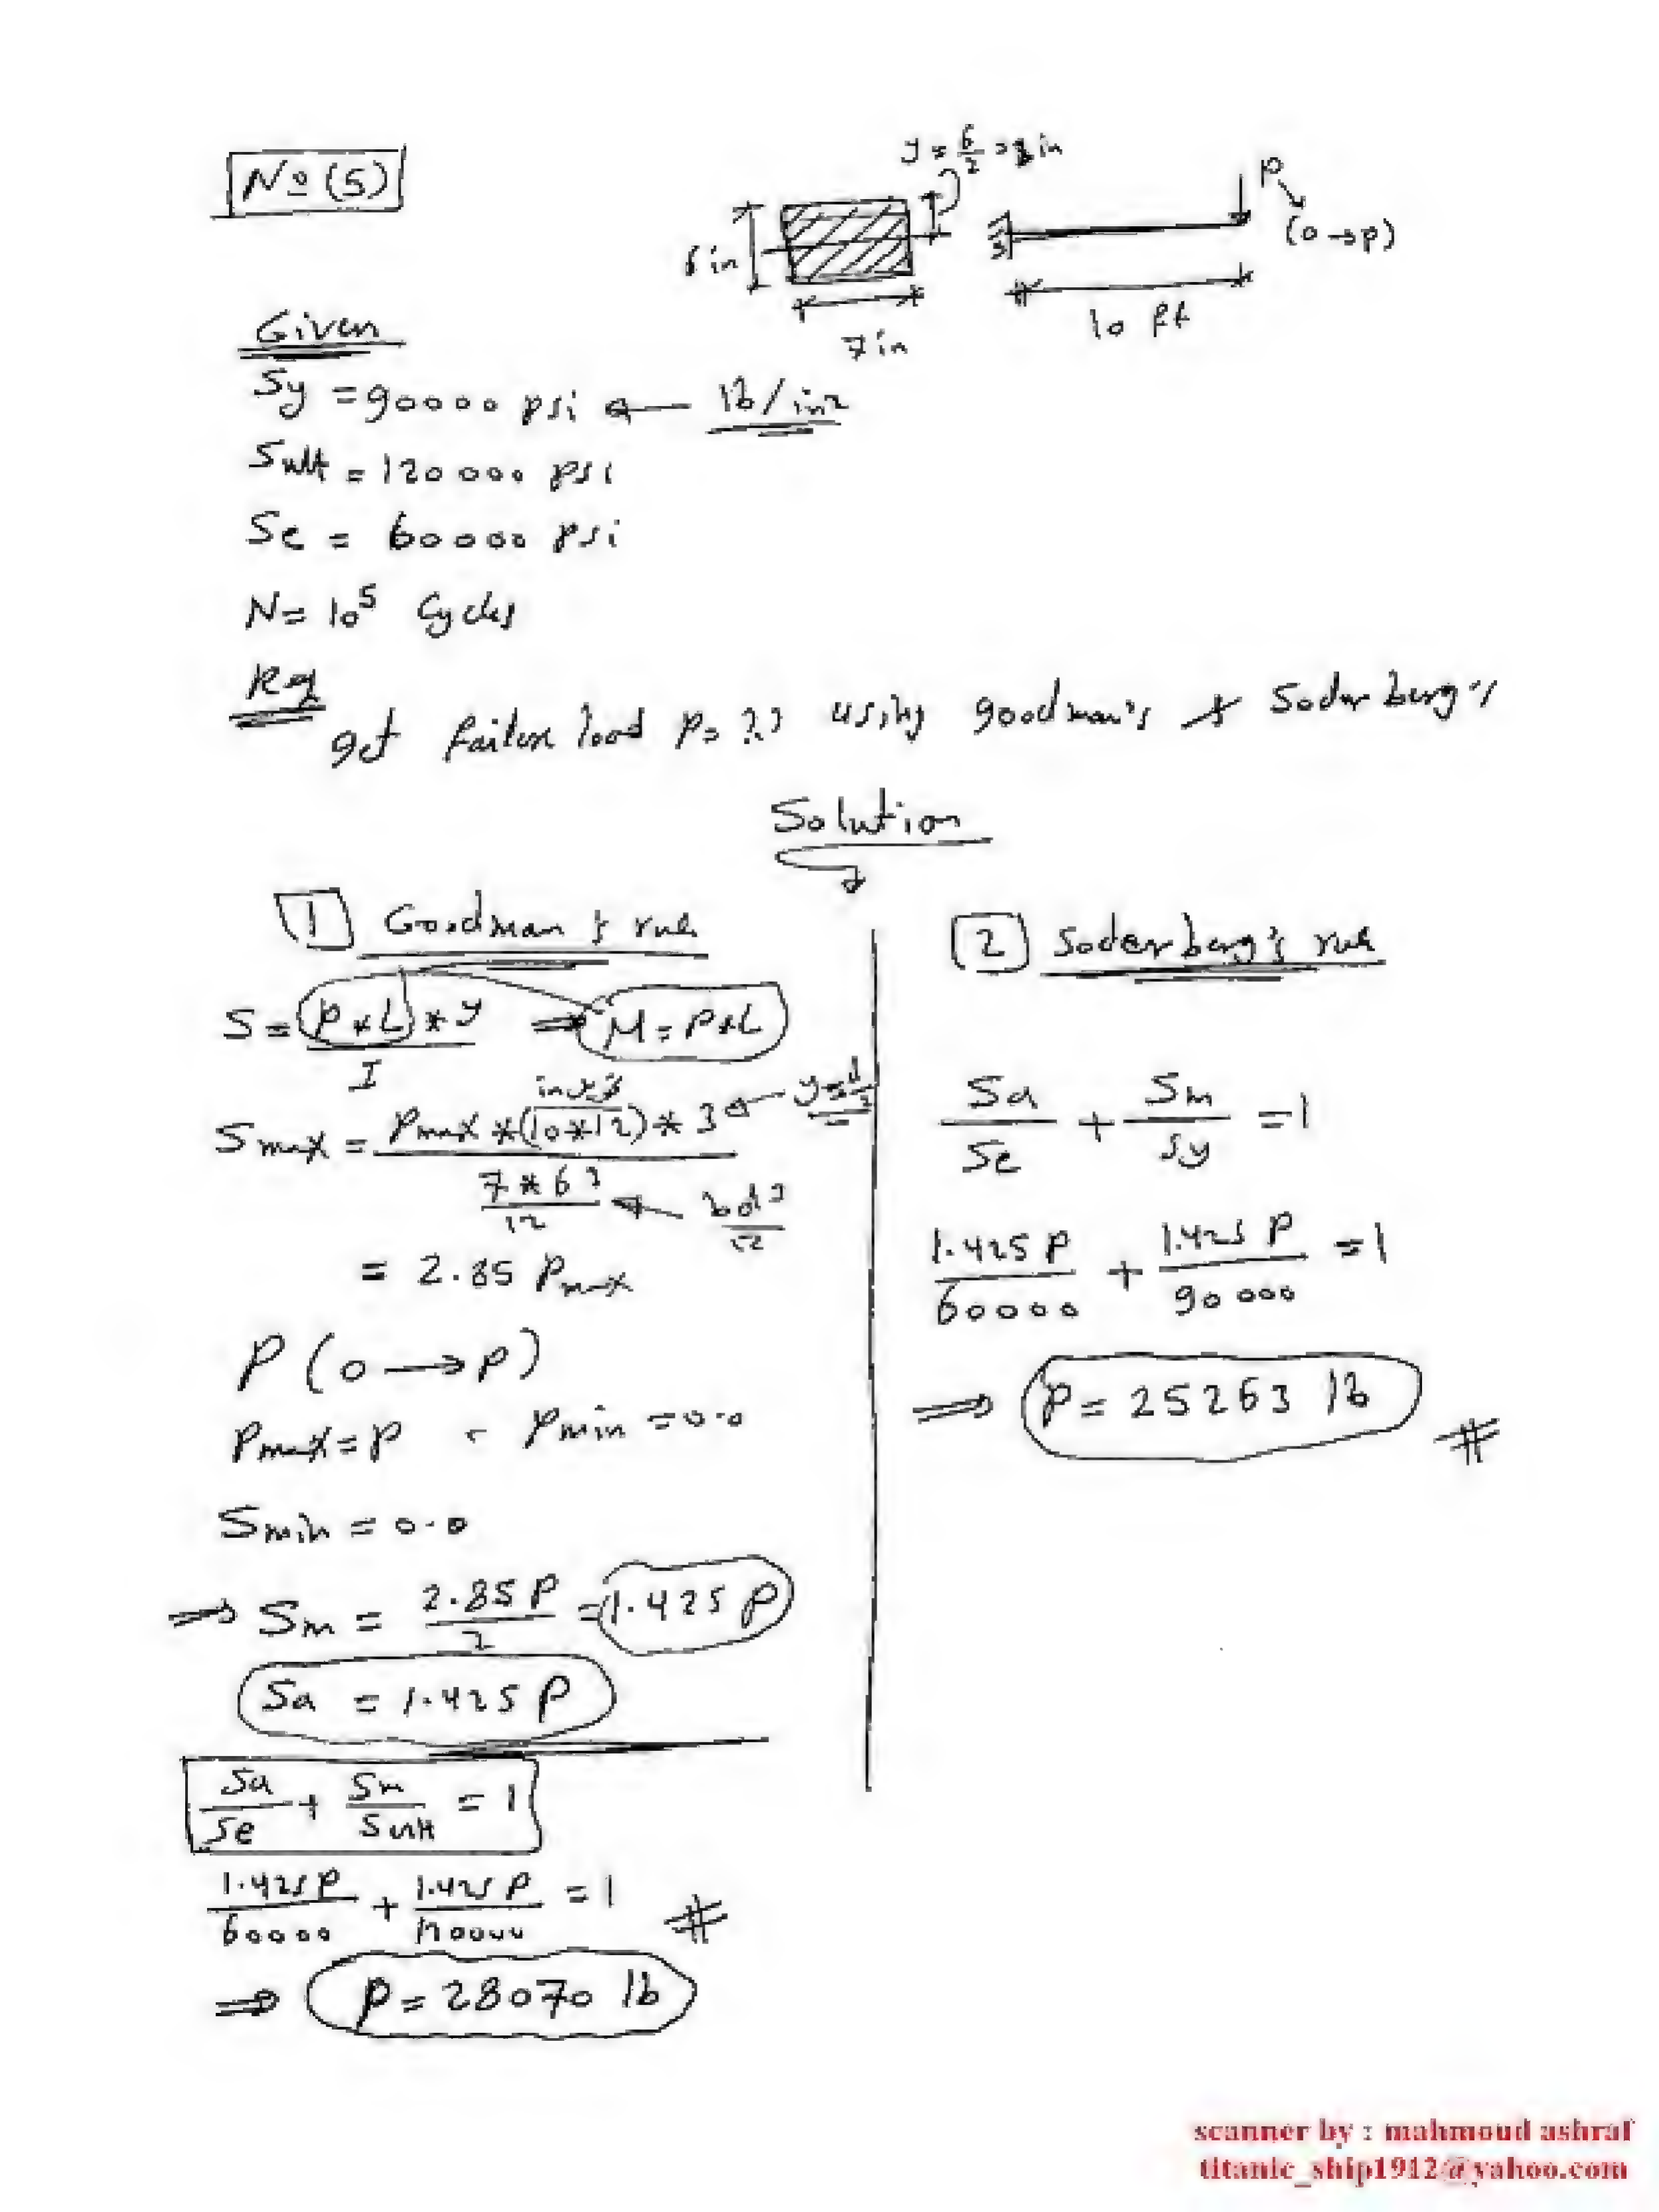 No (5)
y = 6/2 = 3 in
P
(0 → P)
6 in
7 in
10 ft
Given
Sy = 90000 psi ← lb/in2
Sult = 120000 psi
Se = 60000 psi
N = 10^5 Cycles
Req
get failure load P = ?? using goodman's & Soderberg's
Solution
1 Goodman's rule
S = (P * L) * y / I ⇒ M = P * L
Smax = Pmax * (10*12) * 3 / (7 * 6^3 / 12) ← bd^3 / 12
= 2.85 Pmax
P (0 → P)
Pmax = P , Pmin = 0.0
Smin = 0.0
⇒ Sm = 2.85 P / 2 = 1.425 P
Sa = 1.425 P
Sa / Se + Sm / Sult = 1
1.425 P / 60000 + 1.425 P / 120000 = 1
⇒ P = 28070 lb #
2 Soderberg's rule
Sa / Se + Sm / Sy = 1
1.425 P / 60000 + 1.425 P / 90000 = 1
⇒ P = 25263 lb #
scanner by : mahmoud ashraf
titanic_ship1912@yahoo.com